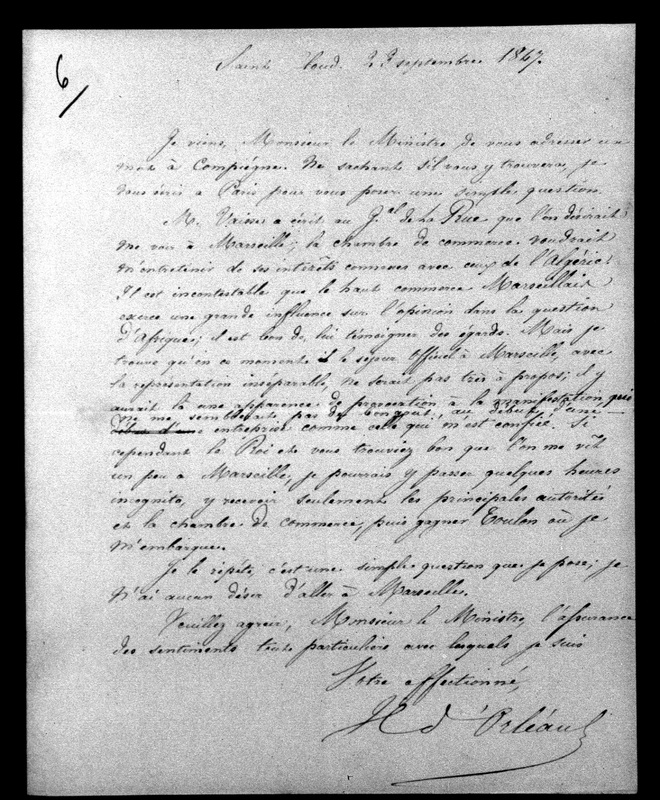 6
Saint Cloud. 23 septembre 1847.
Je viens, Monsieur le Ministre de vous adresser un
mot à Compiègne. Ne sachant s'il vous y trouvera, je
vous écris à Paris pour vous poser une simple question.
M. Vaisse a écrit au Gal de la Rue que l'on désirait
me voir à Marseille; la chambre de commerce voudrait
m'entretenir de ses intérêts connexes avec ceux de l'Algérie.
Il est incontestable que le haut commerce Marseillais
exerce une grande influence sur l'opinion dans la question
d'Afrique; il est bon de lui témoigner des égards. Mais je
trouve qu'en ce moment le séjour officiel à Marseille, avec
la représentation inséparable, ne serait pas très à propos; il y
aurait là une apparence de provocation à la manifestation qui
ne me semblerait pas de bon goût, au début d'une
début d'une entreprise comme celle qui m'est confiée. Si
cependant le Roi et vous trouviez bon que l'on me vît
un peu à Marseille, je pourrais y passer quelques heures
incognito, y recevoir seulement les principales autorités
et la chambre de commerce, puis gagner Toulon où je
m'embarque.
Je le répète, c'est une simple question que je pose; je
n'ai aucun désir d'aller à Marseille.
Veuillez agréer, Monsieur le Ministre, l'assurance
des sentiments tout particuliers avec lesquels je suis
Votre affectionné,
H d'Orléans